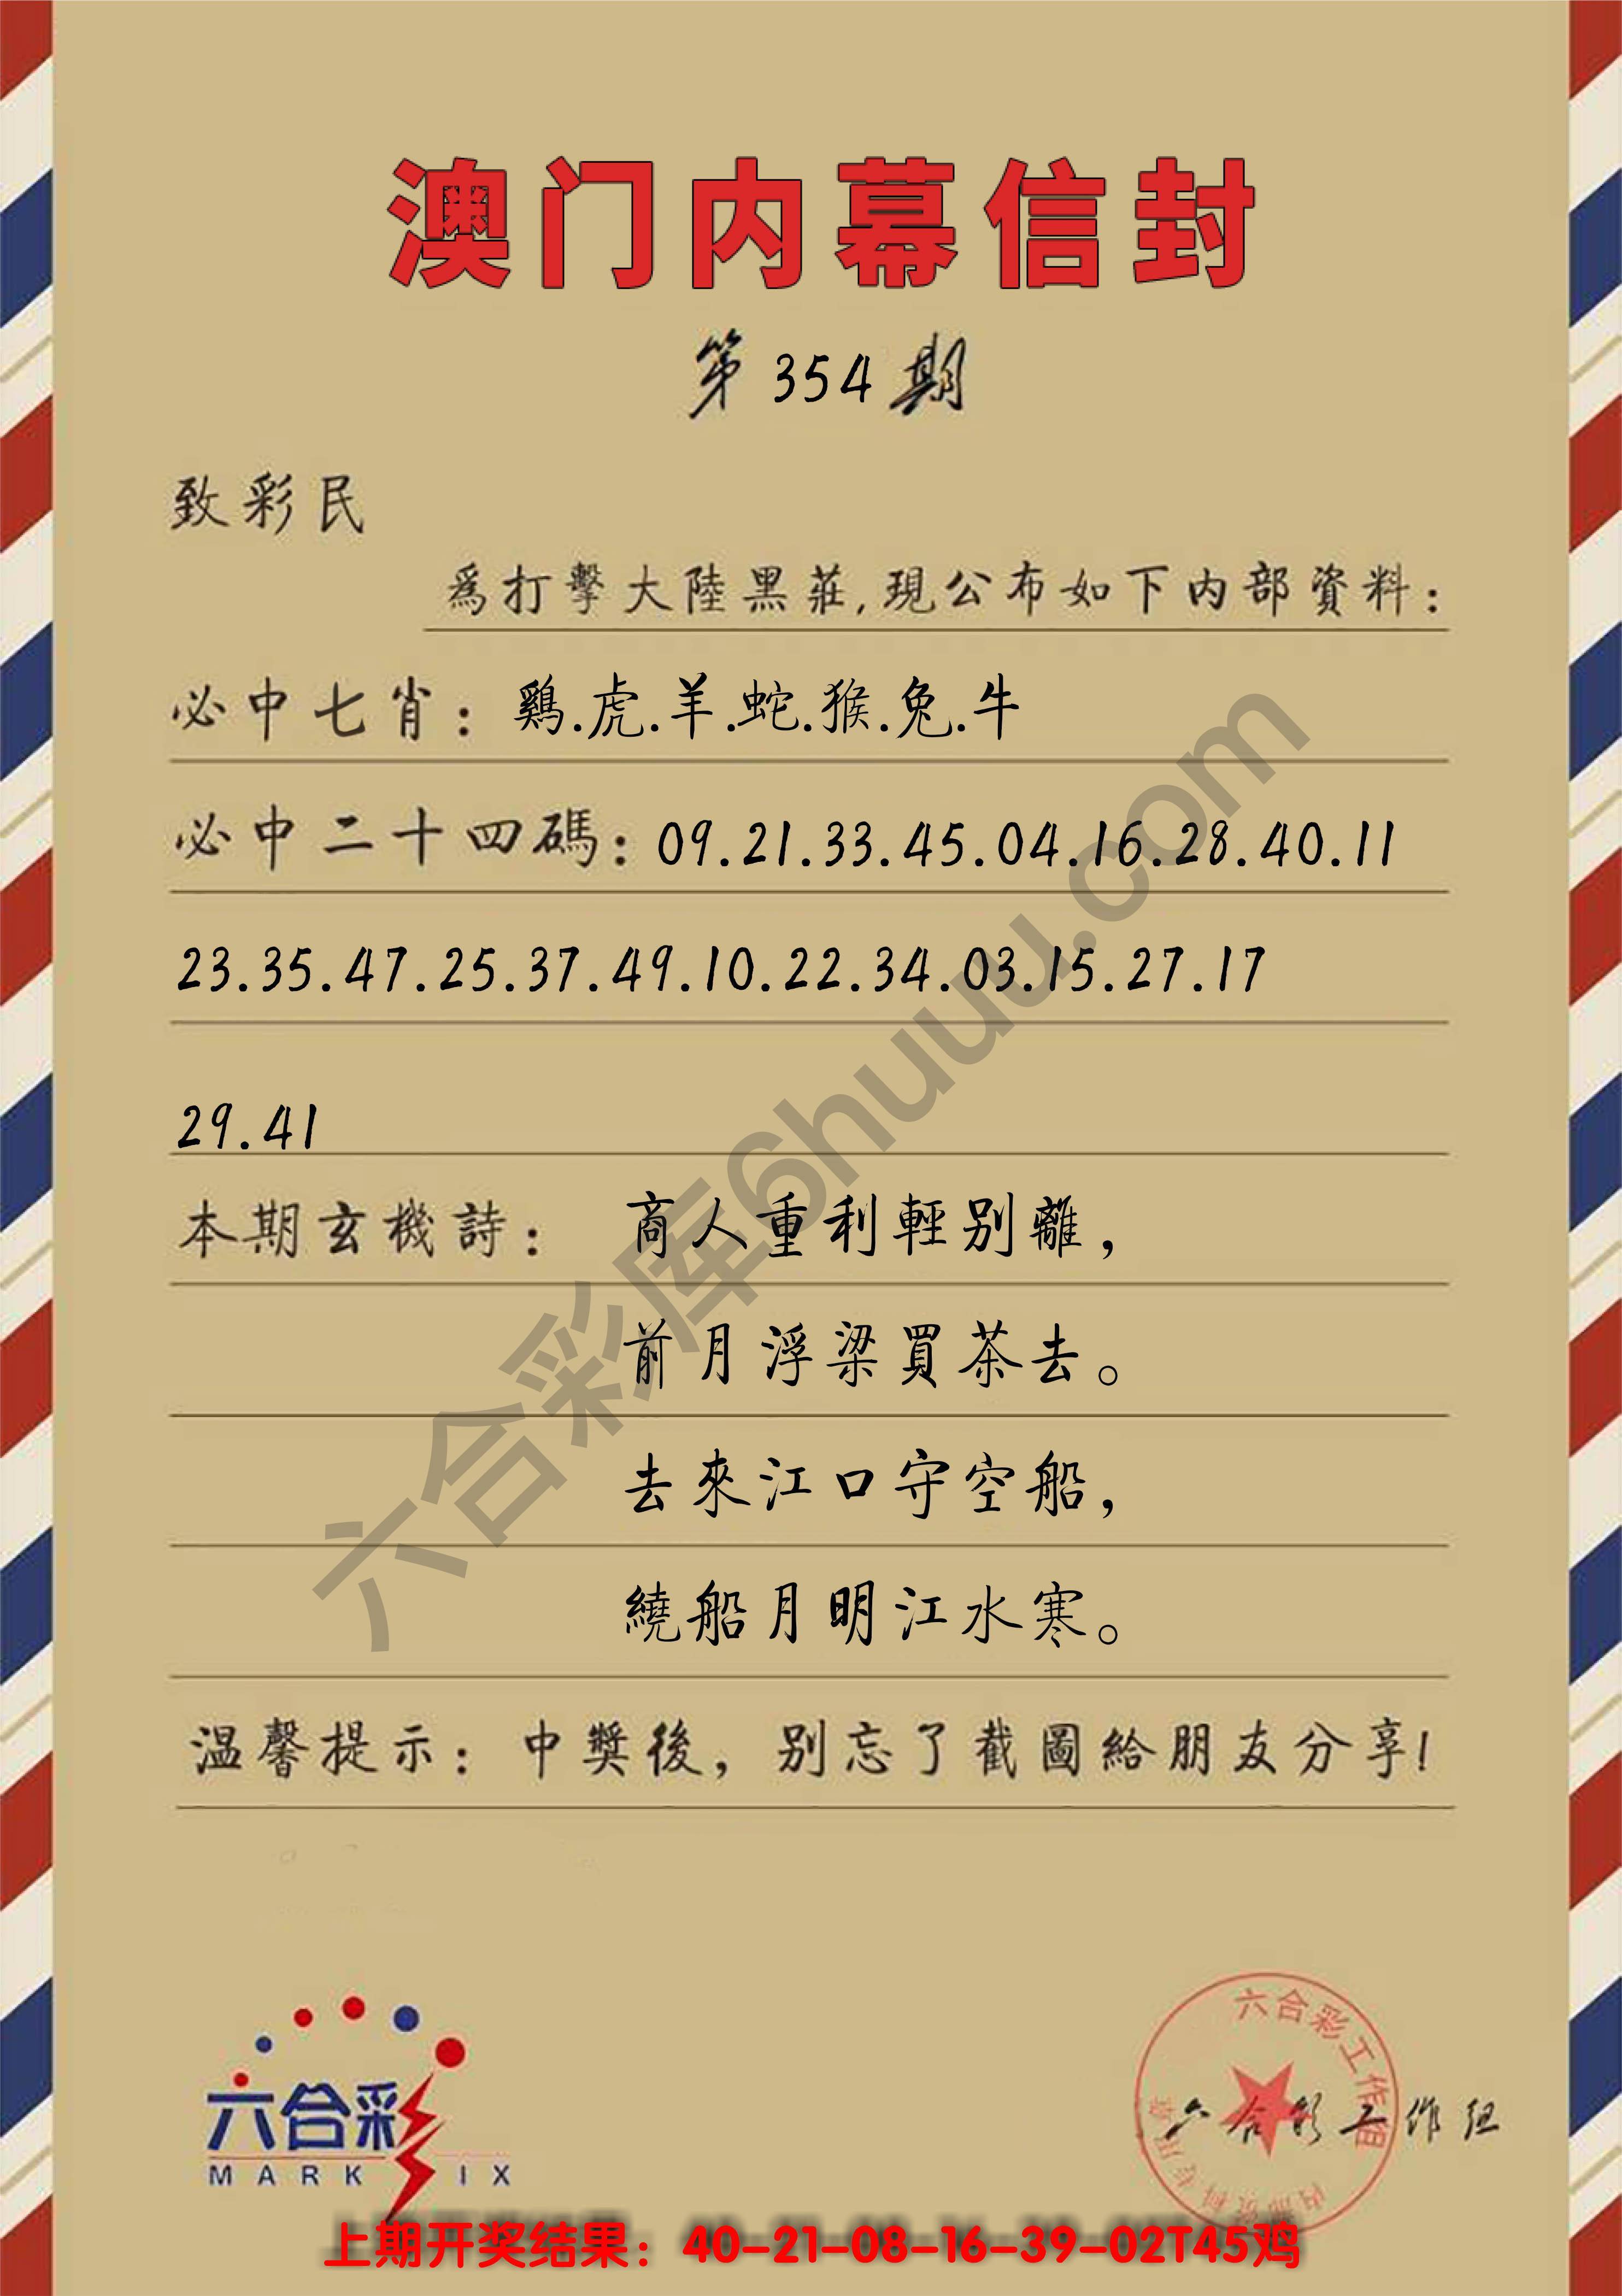 澳门内幕信封
第354期
致彩民
為打擊大陸黑莊,現公布如下内部資料:
必中七肖: 鷄.虎.羊.蛇.猴.兔.牛
必中二十四碼: 09.21.33.45.04.16.28.40.11
23.35.47.25.37.49.10.22.34.03.15.27.17
29.41
本期玄機詩: 商人重利輕别離,
前月浮梁買茶去。
去來江口守空船,
繞船月明江水寒。
温馨提示: 中獎後, 别忘了截圖給朋友分享!
六合彩库6huuu.com
六合彩
MARK IX
六合彩工作组
六合彩工作组
上期开奖结果: 40-21-08-16-39-02T45鸡